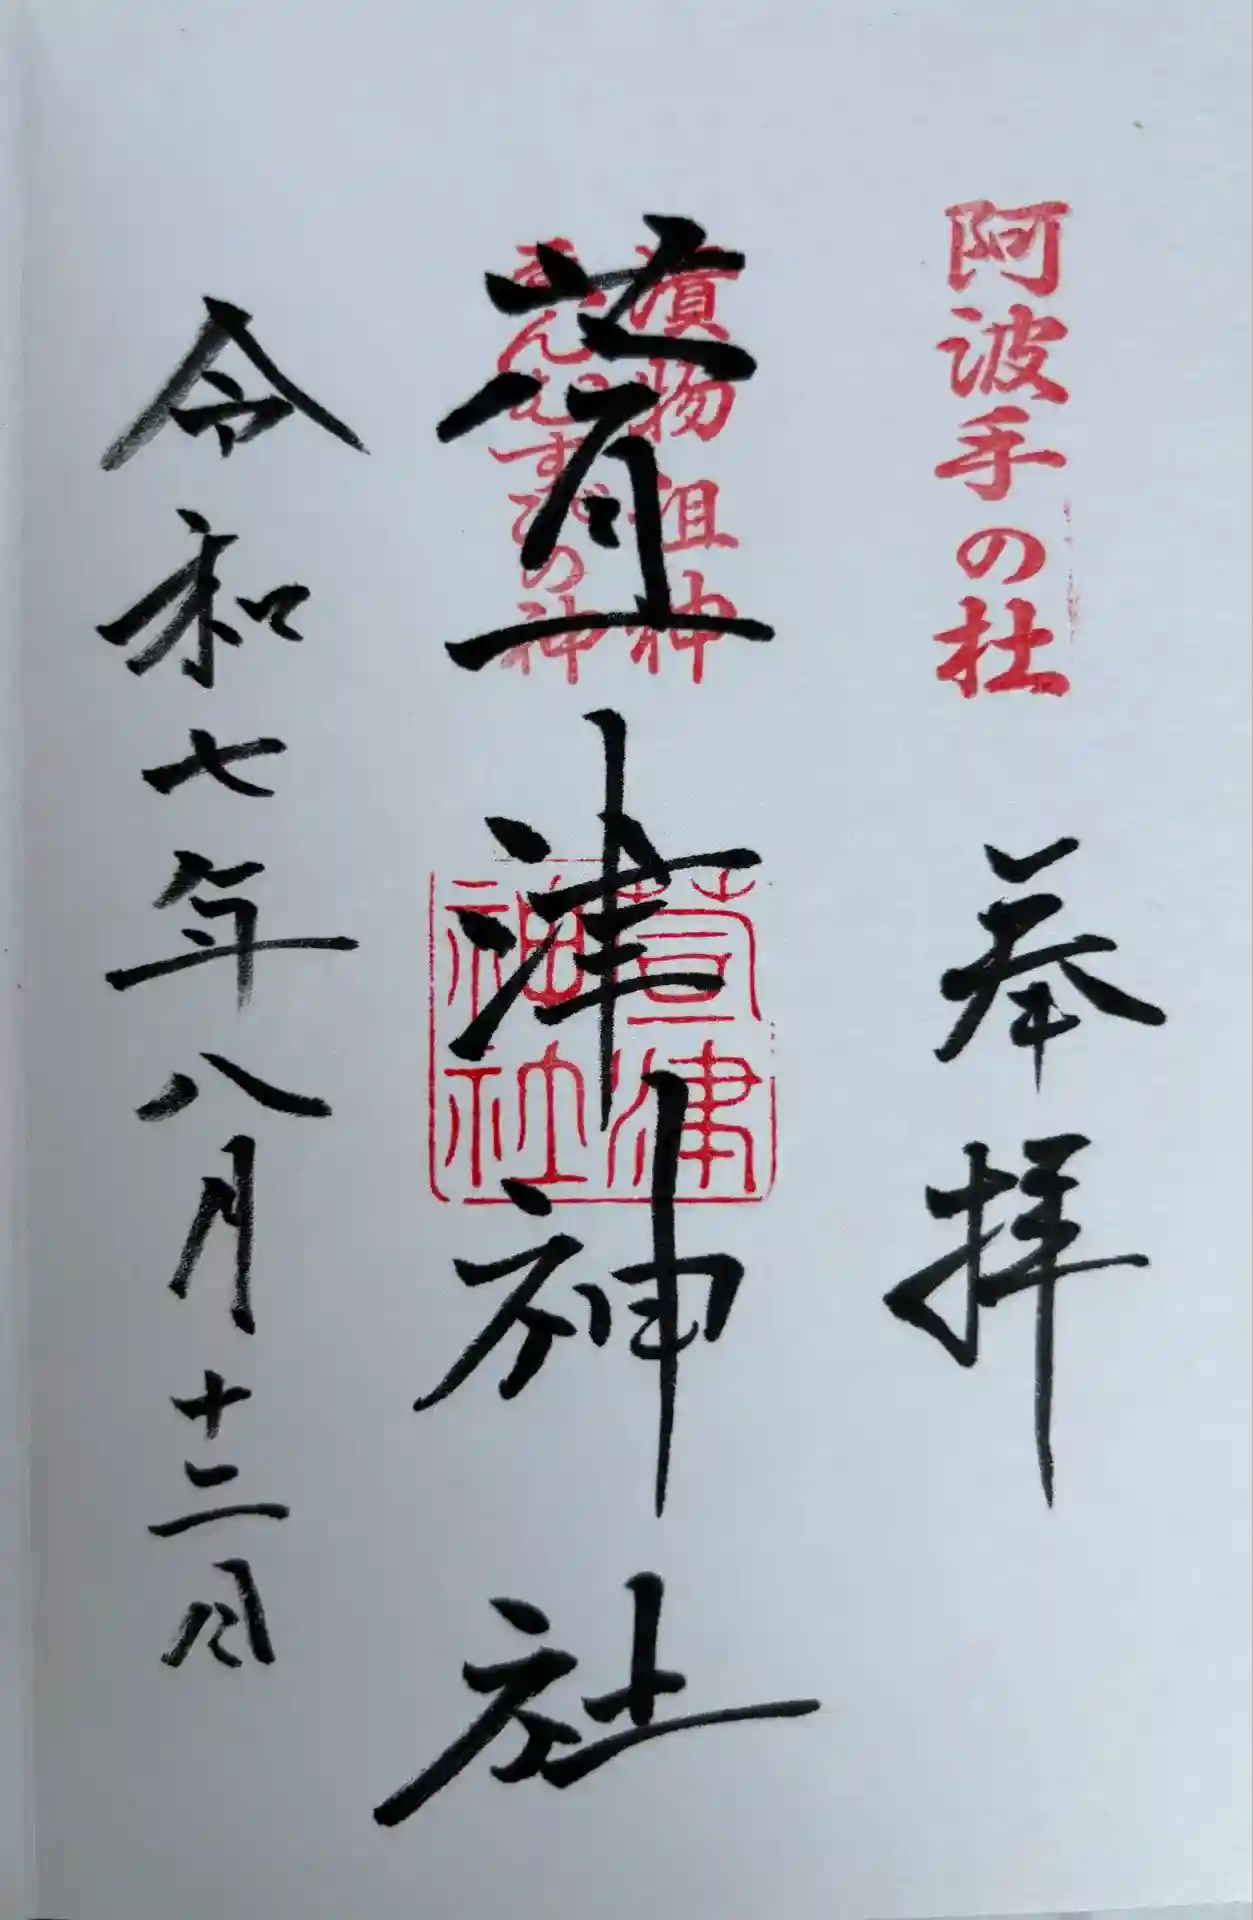 阿波手の杜
奉拝
漬物祖神
んむすびの神
萱津神社
萱津神社
令和七年八月十二日